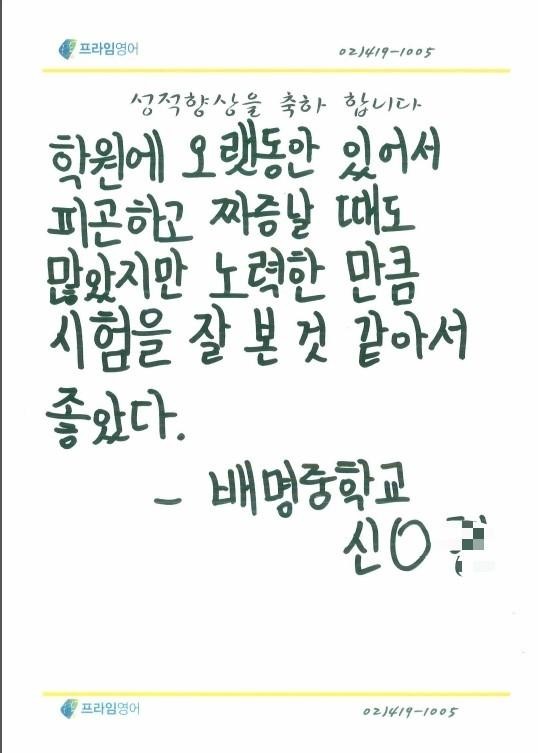 프라임영어 02)419-1005
성적향상을 축하 합니다
학원에 오랫동안 있어서
피곤하고 짜증날 때도
많았지만 노력한 만큼
시험을 잘 본 것 같아서
좋았다.
- 배명중학교
신○
프라임영어 02)419-1005